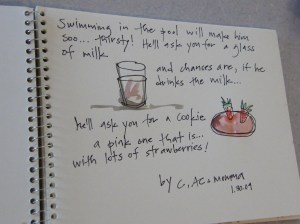 Swimming in the pool will make him
soo... thirsty! He'll ask you for a glass
of milk
and chances are, if he
drinks the milk...
he'll ask you for a cookie
a pink one that is...
with lots of strawberries!
by C, AC & Momma
1.30.09